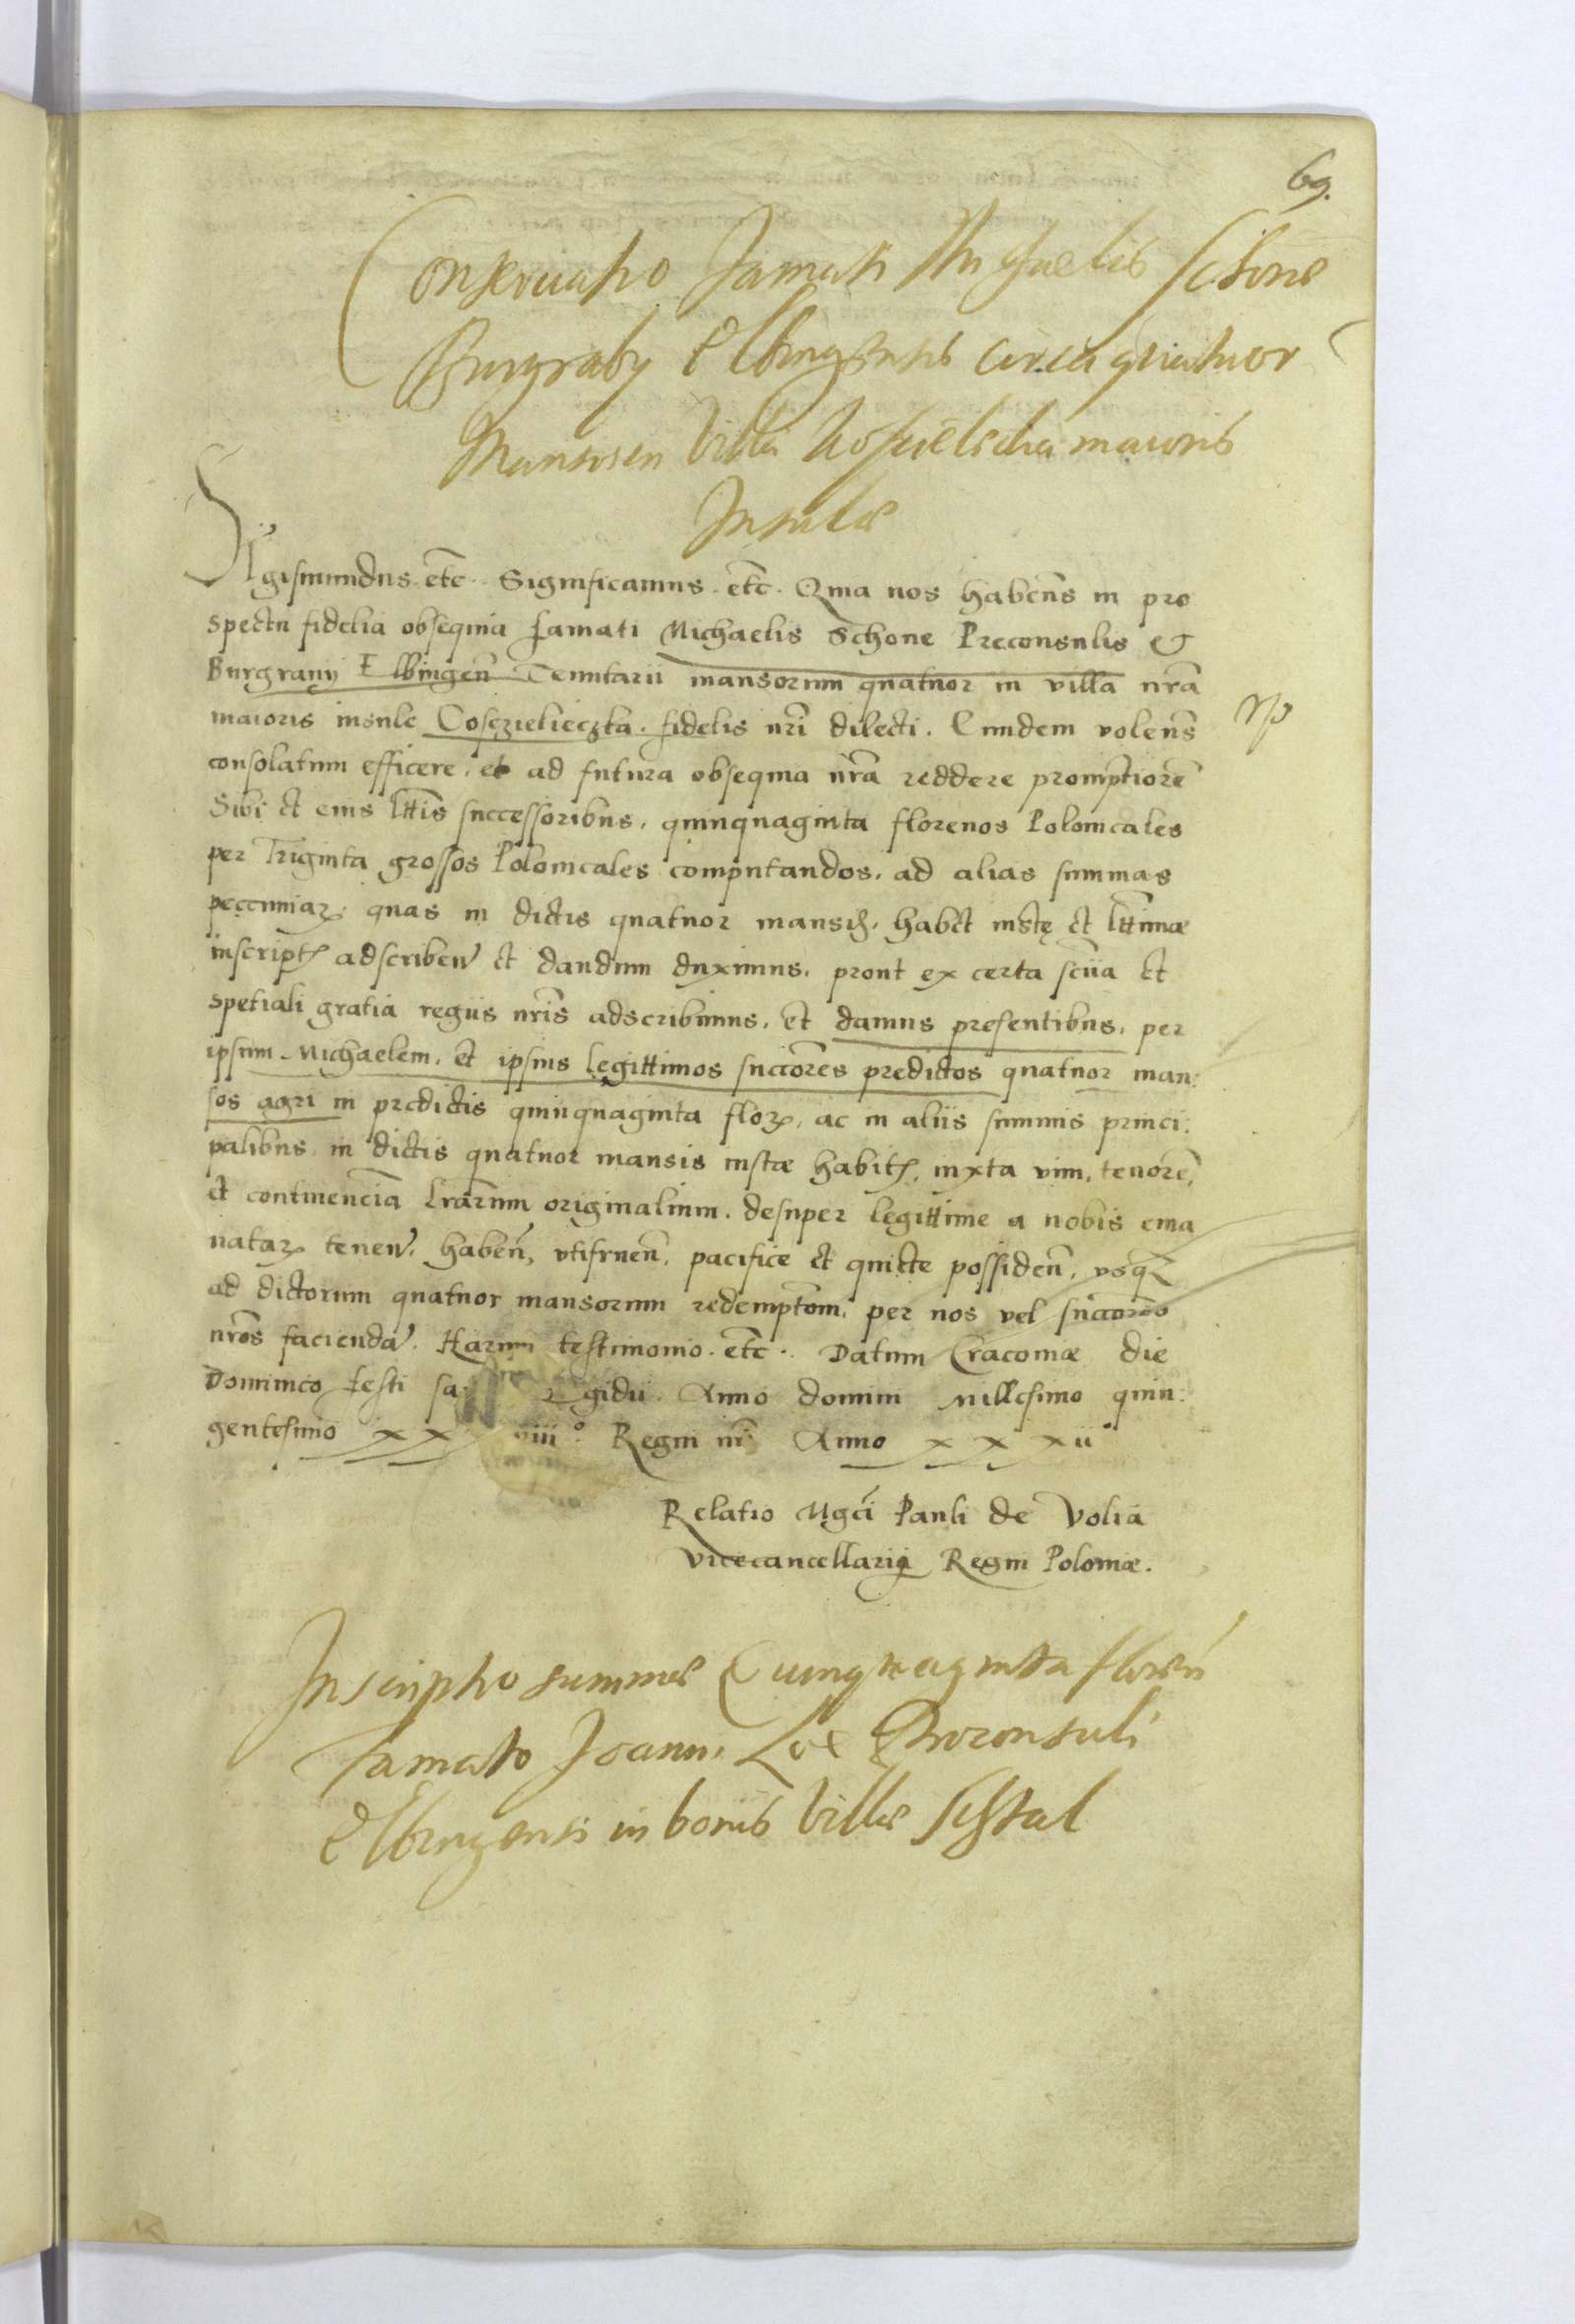 69.
Conseruatio Famati Michaelis Schone
Burgrabij Elbingensis circa quatuor
Mansos in Villa maioris
Insulae
Sigismundus etc. Significamus. etc. Quia nos habent̄s in pro
spectu fidelia obsequia famati Michaelis Schone Preconsulis &
Burgrauij Elbingen̄ Tenutarii mansorum quatuor in villa nr̄a
maioris insule Coszielieczka. fidelis nr̄i dilecti. Eundem volen̄s
consolatum efficere, et ad futura obsequia nr̄a reddere promptiorē
Sibi et eius ltt̄is successoribus, quinquaginta florenos Polonicales
per Triginta grossos Polonicales computandos, ad alias summas
peccuniaꝝ quas in dictis quatuor mansis, habet iustę et ltt̄imæ
inscript̄ adscriben̄ et dandum duximus, prout ex certa scīia et
spetiali gratia regiis nr̄is adscribimus, et damus presentibus, per
ipsum Michaelem, et ipsius legittimos succōres predictos quatuor man:
sos agri in predictis quinquaginta floꝝ, ac in aliis summis princi:
palibus in dictis quatuor mansis iustæ habit̄, iuxta vim, tenorē,
et continenciā lr̄arum originalium. desuper legittime a nobis ema
nataꝝ tenen̄. haben̄, vtifruen̄, pacifice et quiete possiden̄, vsq̄ꝫ
ad dictorum quatuor mansorum redemptōm, per nos vel succōres
nr̄os faciendā. Harum testimonio. etc. Datum Cracouiæ die
Dominico festi sa gidii. Anno domini millesimo quin:
gentesimo xx viii° Regni nr̄i Anno xxxii°
Relatio Mgc̄i Pauli de Volia
Vicecancellarij Regni Poloniæ.
Inscriptio summae Quinquaginta floren̄
Famato Joanni Proconsuli
Elbingensi in bonis Villae